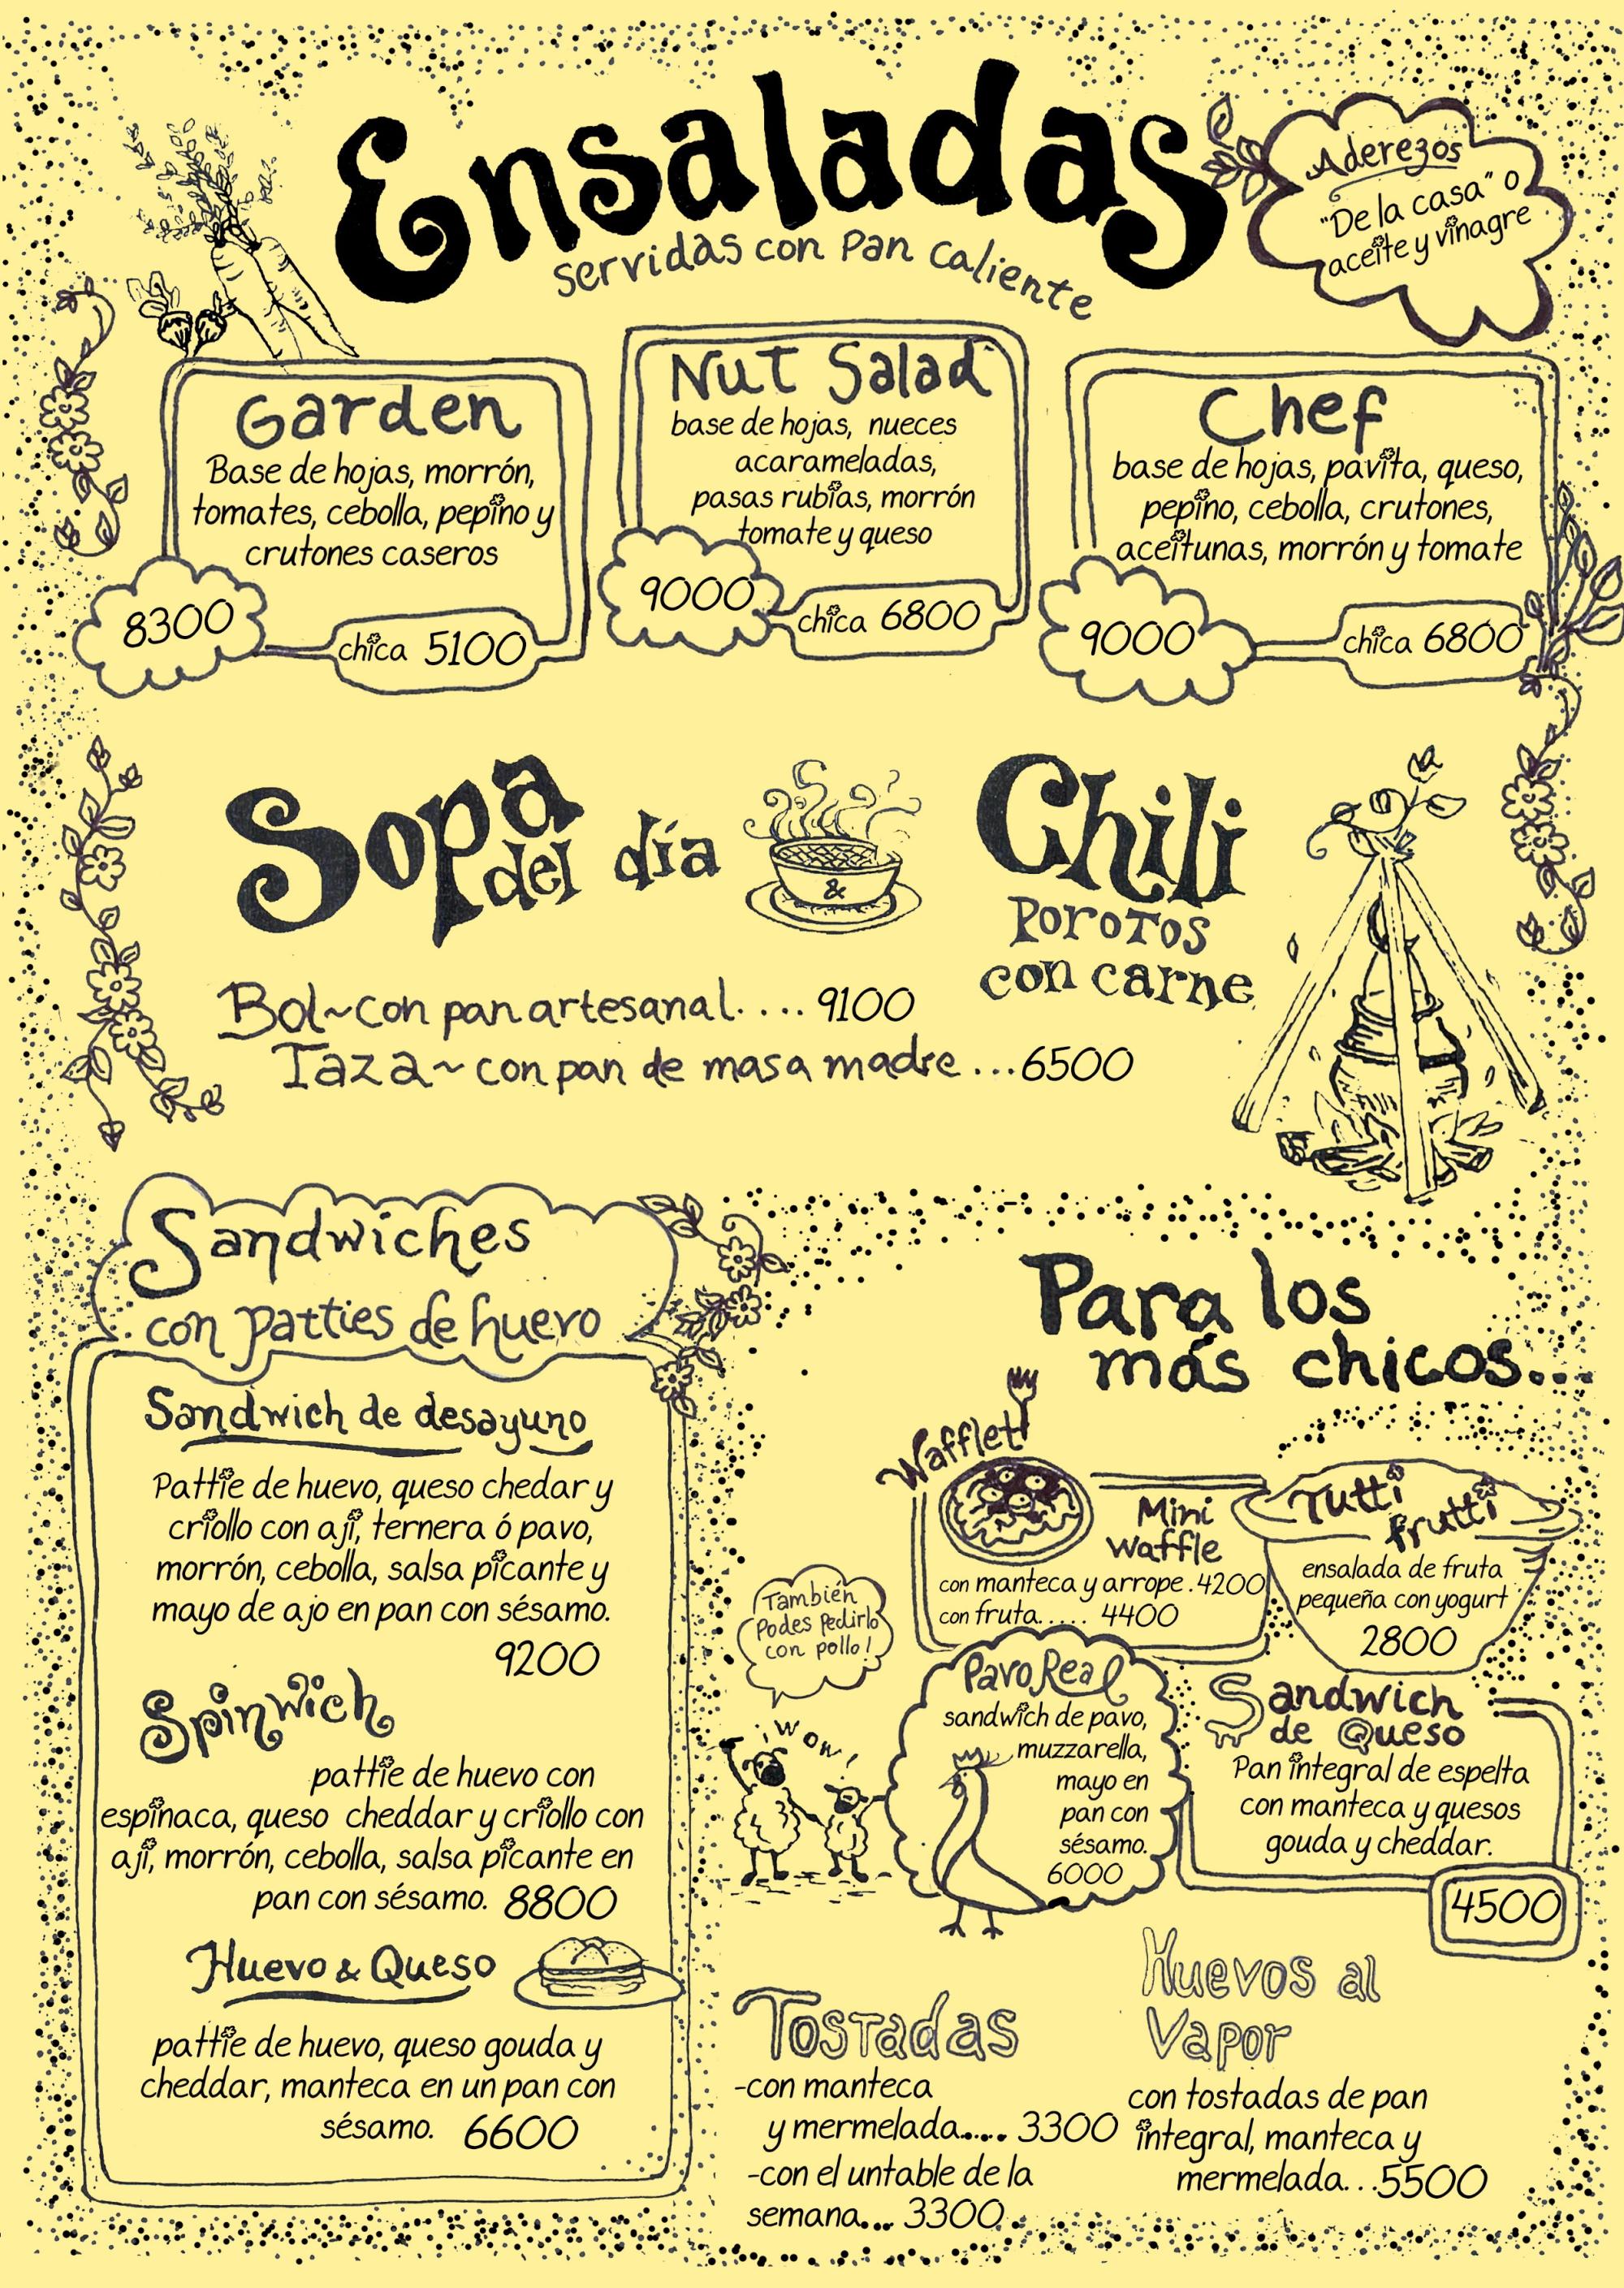 Ensaladas
servidas con Pan Caliente
Aderezos
"De la casa" o
aceite y vinagre
Garden
Base de hojas, morrón,
tomates, cebolla, pepino y
crutones caseros
8300
chica 5100
Nut Salad
base de hojas, nueces
acarameladas,
pasas rubias, morrón
tomate y queso
9000
chica 6800
Chef
base de hojas, pavita, queso,
pepino, cebolla, crutones,
aceitunas, morrón y tomate
9000
chica 6800
Sopa
del día
&
Chili
Porotos
con carne
Bol~con pan artesanal.... 9100
Taza~con pan de masa madre...6500
Sandwiches
con patties de huevo
Sandwich de desayuno
Pattie de huevo, queso chedar y
criollo con ají, ternera ó pavo,
morrón, cebolla, salsa picante y
mayo de ajo en pan con sésamo.
9200
Spinwich
pattie de huevo con
espinaca, queso cheddar y criollo con
ají, morrón, cebolla, salsa picante en
pan con sésamo. 8800
Huevo & Queso
pattie de huevo, queso gouda y
cheddar, manteca en un pan con
sésamo. 6600
Para los
más chicos...
Wafflet
Mini
waffle
con manteca y arrope.4200
con fruta...... 4400
Tutti
frutti
ensalada de fruta
pequeña con yogurt
2800
También
Podes Pedirlo
con pollo!
Wow!
Pavo Real
sandwich de pavo,
muzzarella,
mayo en
pan con
sésamo.
6000
Sandwich
de Queso
Pan integral de espelta
con manteca y quesos
gouda y cheddar.
4500
Tostadas
-con manteca
y mermelada...... 3300
-con el untable de la
semana... 3300
Huevos al
Vapor
con tostadas de pan
integral, manteca y
mermelada...5500